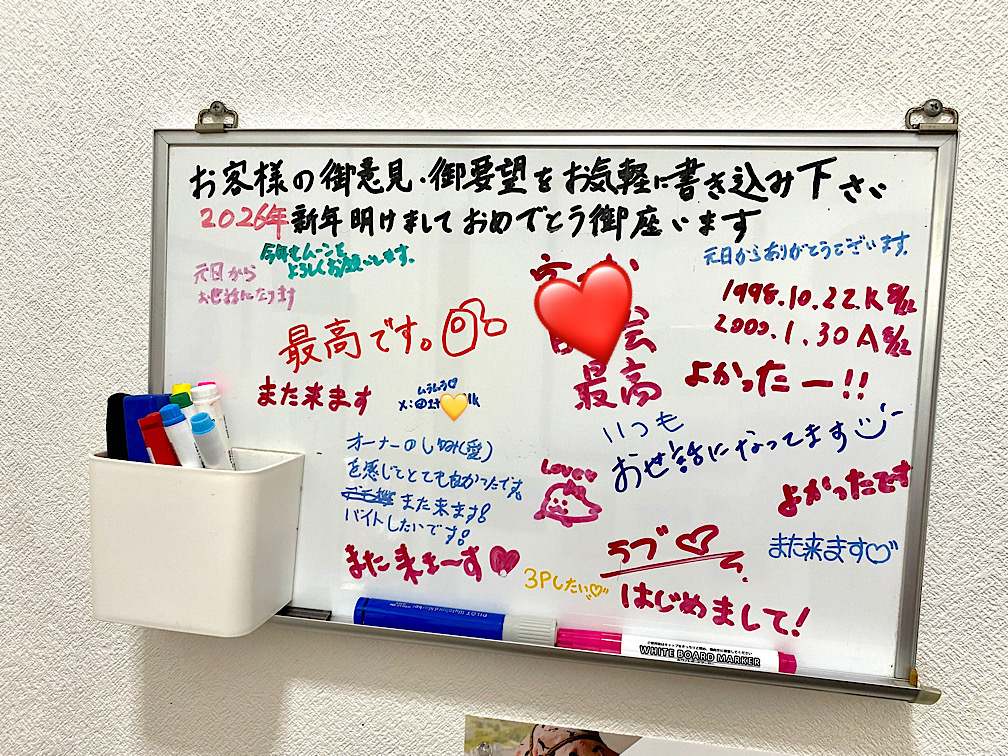 お客様の御意見・御要望をお気軽に書き込み下さい
2026年新年明けましておめでとう御座います
今年もムーンを
よろしくお願いします。
元日からありがとうございます。
元日から
お世話になります
1998.10.22.K
2000.1.30 A
最高です。
会
最高
よかったー!!
また来ます
ムラムラ♡
X:@
いつも
お世話になってます
オーナーの
を感じてとても良かったです。
また来ます!
バイトしたいです!
Lovey
よかったです
ラブ♡
また来ます♡
また来ま〜す♥
3Pしたい♡
はじめまして!
PILOT
WHITE BOARD MARKER